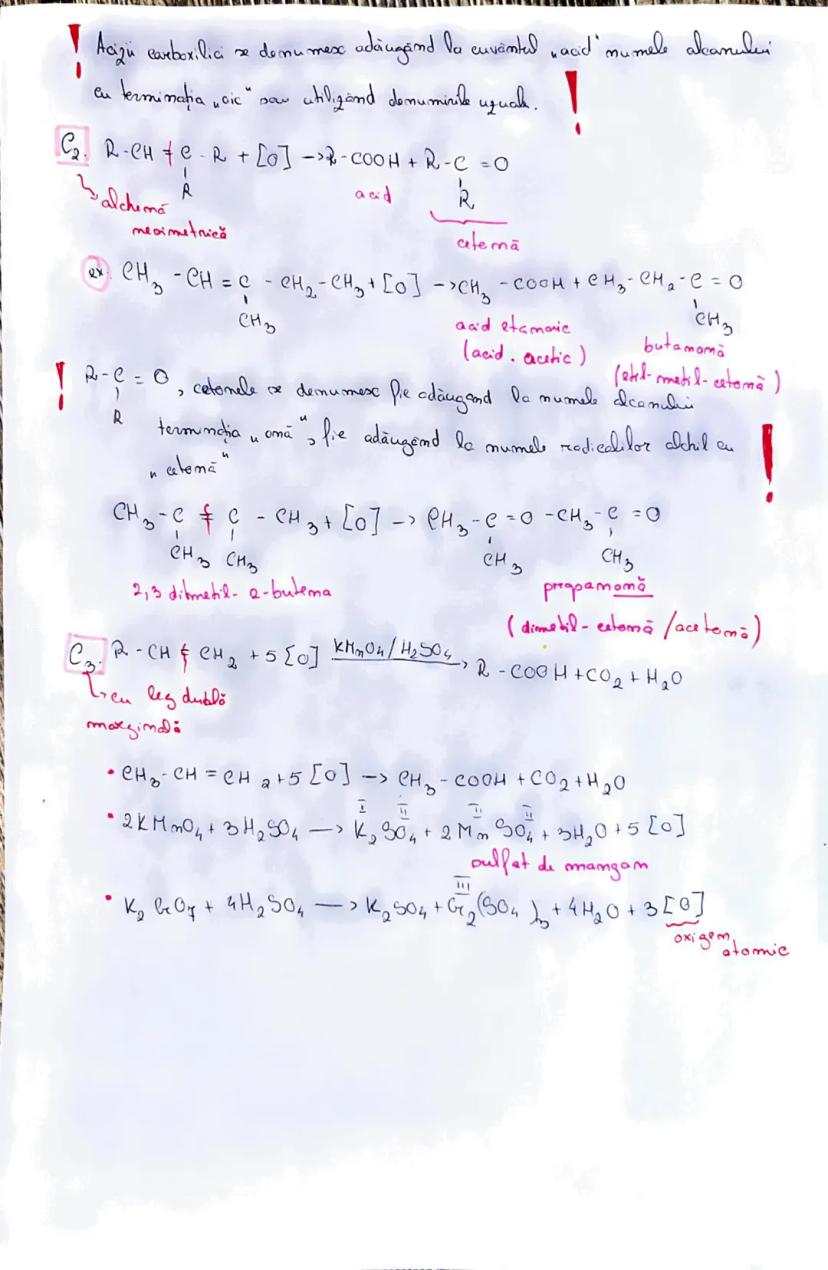 ! Acizii carboxilici se denumesc adăugând la cuvântul „acid" numele alcanului
cu terminația „oic" sau utilizând denumirile uzuale. !
C2. R-CH = C - R + [O] -> R-COOH + R-C =O
R
R
alchenă
nesimetrică
acid
cetonă
ex. CH3 -CH = C - CH2-CH3 + [O] -> CH3 -COOH + CH3-CH2-C = O
CH3
CH3
acid etanoic
(acid. acetic)
butanonă
(etil-metil-cetonă)
! R-C = O, cetonele se denumesc fie adăugând la numele alcanului
R
terminația „onă", fie adăugând la numele radicalilor alchil cu
„cetonă" !
CH3-C = C - CH3 + [O] -> CH3-C=O -CH3-C =O
CH3 CH3
CH3
CH3
2,3 dimetil- 2-butena
propanonă
(dimetil-cetonă /acetonă)
C3. R-CH = CH2 +5 [O] KMnO4/H2SO4 -> R -COOH +CO2 + H2O
cu leg dublă
marginală
• CH3-CH = CH2+5 [O] -> CH3-COOH +CO2 +H2O
• 2KMnO4 + 3H2SO4 -> K2SO4 + 2MnSO4 + 3H2O +5 [O]
I II II II
sulfat de mangan
• K2CrO7 + 4H2SO4 -> K2SO4 + Cr2(SO4)3 + 4H2O + 3[O]
III
oxigen atomic